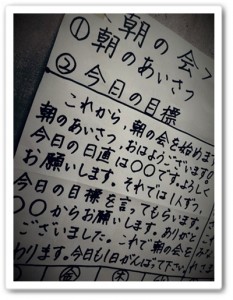 朝の会
①朝のあいさつ
②今日の目標
これから、朝の会を始めます
朝のあいさつ、おはようございます
今日の日直は〇〇です。よろしく
お願いします。それでは1人ずつ、
今日の目標を言ってもらいます
〇〇からお願いします。ありがと
ございました。これで朝の会を
わります。今日も1日がんばって下さい
金
木